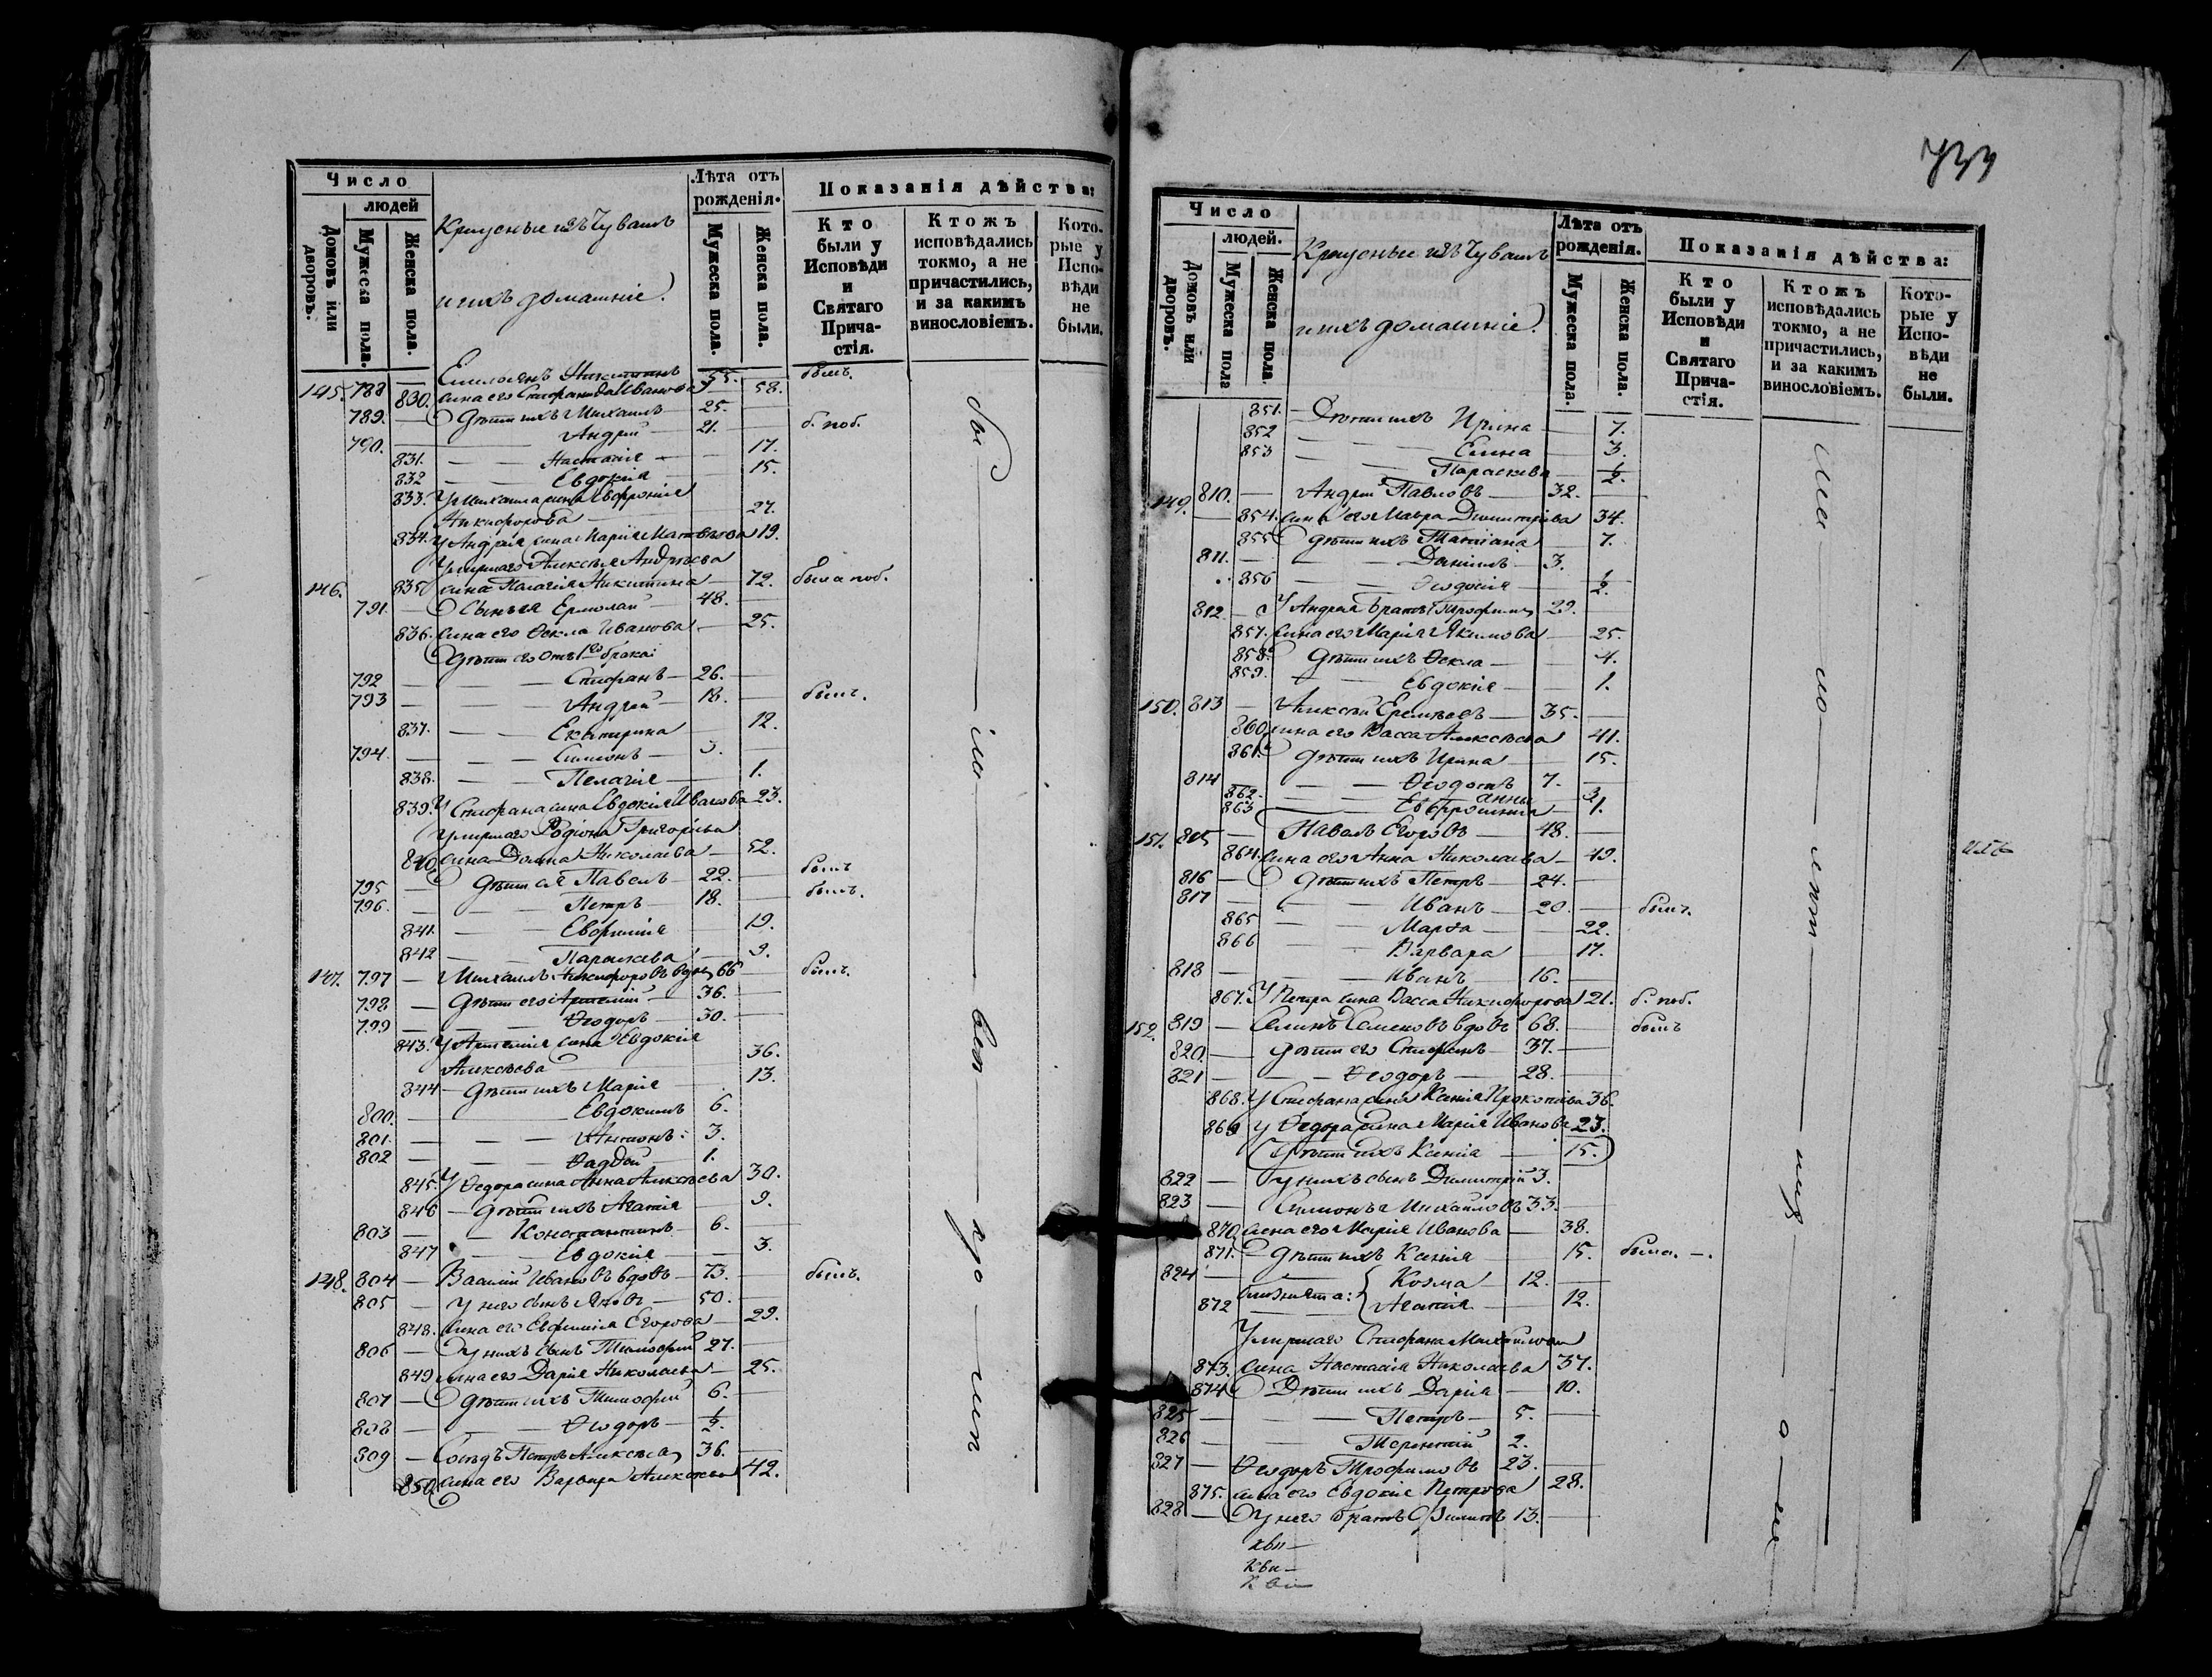 Число
людей
Домовъ или дворовъ.
Мужеска пола.
Женска пола.
Крещеные изъ Чувашъ
и ихъ домашніе.
Лѣта отъ рожденія.
Мужеска пола.
Женска пола.
Показанія дѣйства:
Кто были у Исповѣди и Святаго Прича-стія.
Ктожъ исповѣдались токмо, а не причастились, и за какимъ винословіемъ.
Кото-рые у Испо-вѣди не были.
145. 788 — Емилианъ Никитинъ 55. — былъ.
830. жена его Стефанида Иванова 58.
789. — Дѣти ихъ Михаилъ — 25. —
790. — Андрей — 21. — б. поб.
831. — — Настасія — — 17.
832 — — Евдокія — — 15.
833. У Михаила жена Евфросинія
Никифорова — 27.
834. У Андрея жена Марія Матвѣева 19.
Умершаго Алексѣя Андрѣева
146. 835 жена Пелагія Никитина — 72. была поб.
791. — Сынъ ея Ермолай — 48. —
836. жена его Ѳекла Иванова — 25.
Дѣти его отъ 1го брака:
792 — — — Стефанъ — 26. —
793 — — — Андрей — 18. — былъ.
837. — — Екатерина 12.
794. — — — Симеонъ — 3. —
838. — — Пелагія — 1.
839. У Стефана жена Евдокія Иванова 23.
Умершаго Родіона Григорьева
840. жена Домна Николаева — 52.
795 — дѣти ея Павелъ — 22. — былъ
796. — — — Петръ — 18. — былъ.
841. — — Евфимія 19.
842 — — Параскева — 9.
147. 797 — Михаилъ Никифоровъ вдов. 66 — былъ.
798 — дѣти его Артемій — 36. —
799 — — — Ѳеодоръ — 30. —
843. У Артемія жена Евдокія
Алексѣева 36.
844 — дѣти ихъ Марія 13.
800. — Евдокимъ 6.
801. — — — Антонъ: 3.
802 — — — Ѳаддей 1.
845. У Ѳедора жена Анна Алексѣева 30.
846 — дѣти ихъ Агапія 9.
803 — — Константинъ — 6. —
847 — — Евдокія — — 3.
148. 804 — Василій Ивановъ вдовъ — 73. — былъ.
805 — у него сынъ Яковъ — 50. —
848. жена его Евфимія Егорова — 29.
806 — у нихъ сынъ Тимофей 27. —
849 жена его Дарія Николаева — 25.
807 — дѣти ихъ Тимофей 6. —
808 — — — Ѳеодоръ — ½. —
809 — Сосѣдъ Петръ Алексѣевъ 36. —
850. жена его Варвара Алексѣева 42.
733
Число
людей.
Домовъ или дворовъ.
Мужеска пола
Женска пола.
Крещеные изъ Чувашъ
и ихъ домашніе.
Лѣта отъ рожденія.
Мужеска пола.
Женска пола.
Показанія дѣйства:
Кто были у Исповѣди и Святаго Прича-стія.
Ктожъ исповѣдались токмо, а не причастились, и за какимъ винословіемъ.
Кото-рые у Испо-вѣди не были.
851. — Дѣти ихъ Ирина — 7.
852 — — Елена — 3.
853 — — Параскева — ½.
149. 810. — Андрей Павловъ — 32. —
— 854. жена его Мавра Димитріева 34.
855 дѣти ихъ Татіана 7.
811. — — — Даніилъ — 3.
856 — — Ѳеодосія — ½.
812 — У Андрея братъ Трофимъ 29. —
857. жена его Марія Якимова — 25.
858. дѣти ихъ Ѳекла — — 4.
859. — — Евдокія — — 1.
150. 813 — Алексѣй Еремѣевъ — 35. —
860. жена его Васса Алексѣева 41.
861. дѣти ихъ Ирина — 15.
814 — — Ѳеодотъ 7. —
862. — — Анна 3
863 — — Евфросинія — 1.
151. 815 — Павелъ Егоровъ — 48. —
864. жена его Анна Николаева — 49.
816 — дѣти ихъ Петръ — 24. —
817 — — — Иванъ — 20. — былъ.
865 — — Марѳа — 22.
866 — — Варвара 17.
818 — — — Иванъ — 16. —
867. У Петра жена Васса Никифорова 21. б. поб.
152. 819 — Семенъ Семеновъ вдовъ 68. — былъ
820. — дѣти его Стефанъ — 37. —
821 — — — Ѳеодоръ — 28. —
868. У Стефана жена Ксенія Прокопіева 36.
869 У Ѳедора жена Марія Иванова 23.
(дѣти ихъ Ксенія — 15.)
822 — у нихъ сынъ Димитрій 3.
823 — Симеонъ Михайловъ 33.
870. жена его Марія Иванова — 38.
871. — дѣти ихъ Ксенія — 15. была. —.
824 — Козма — 12. —
872 близнята: Агапія — 12.
Умершаго Стефана Михайлова
873. жена Настасія Николаева 37.
874 Дѣти ихъ Дарія — 10.
825 — — Петръ — 5. —
826 — — Терентій 2.
827 — Ѳеодоръ Трофимовъ 23. —
875. жена его Евдокія Петрова 28.
828 — у него братъ Филипъ 13. —